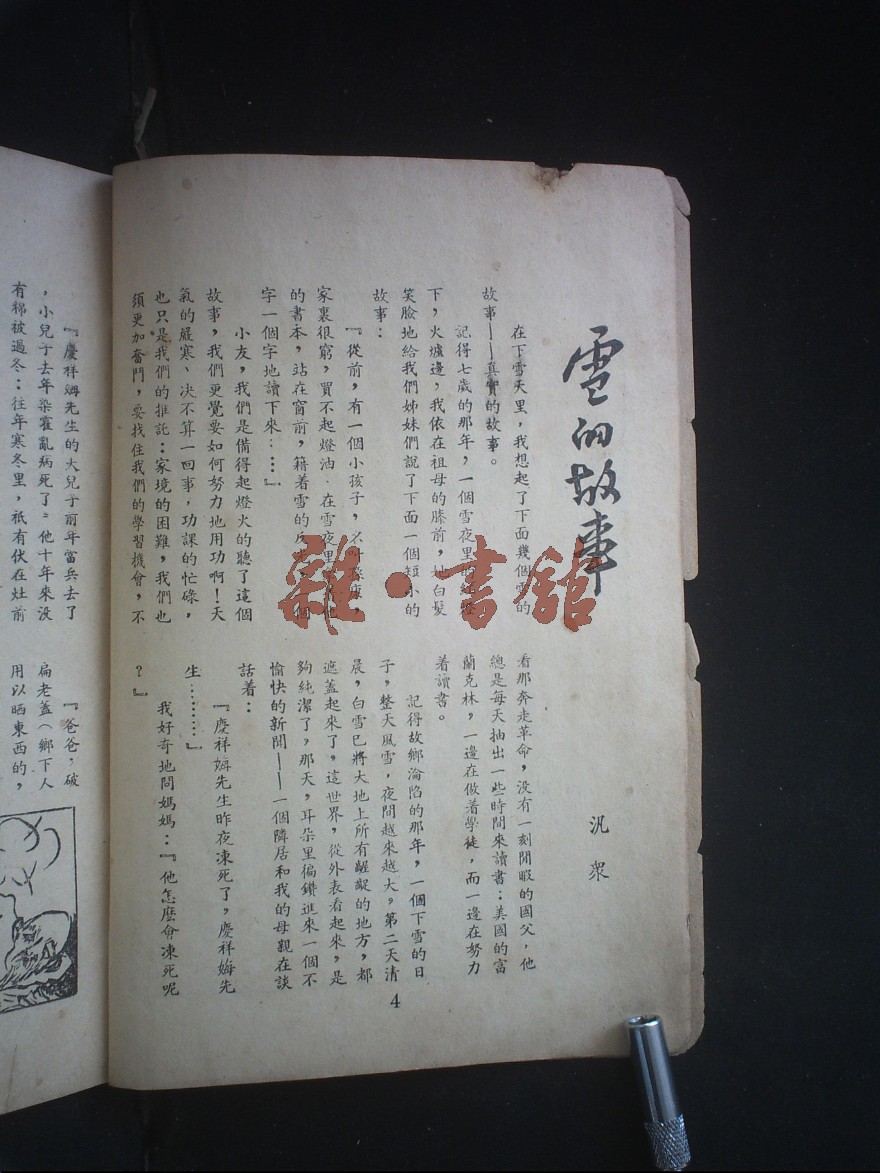 雪的故事
汎衆
在下雪天里，我想起了下面幾個雪的
故事——真實的故事。
記得七歲的那年，一個雪夜里的
下，火爐邊，我依在祖母的膝前，她白髮
笑臉地給我們姊妹們說了下面一個短小的
故事：
『從前，有一個小孩子，
家裏很窮，買不起燈油．在雪夜里
的書本，站在窗前，籍着雪的反 個
字一個字地讀下來……』
小友，我們是備得起燈火的聽了這個
故事，我們更覺要如何努力地用功啊！天
氣的嚴寒、决不算一回事，功課的忙碌，
也只是我們的推託：家境的困難，我們也
須更加奮鬥，要找住我們的學習機會，不
看那奔走革命，没有一刻閒暇的國父，他
總是每天抽出一些時間來讀書：美國的富
蘭克林，一邊在做着學徒，而一邊在努力
着讀書。
記得故鄉淪陷的那年，一個下雪的日
子，整天風雪，夜間越來越大，第二天清
晨，白雪已將大地上所有齷齪的地方，都
遮蓋起來了，這世界，從外表看起來，是
夠純潔了，那天，耳朵里偏鑽進來一個不
愉快的新聞——一個隣居和我的母親在談
話着：
『慶祥娒先生昨夜凍死了，慶祥娒先
生…………』
我好奇地問媽媽：『他怎麽會凍死呢
？』
4
『慶祥娒先生的大兒子前年當兵去了
，小兒子去年染霍亂病死了＝他十年來没
有棉被過冬：往年寒冬里，祇有伏在灶前
『爸爸，破
扁老蓋（鄉下人
用以晒東西的，
雜·書舘